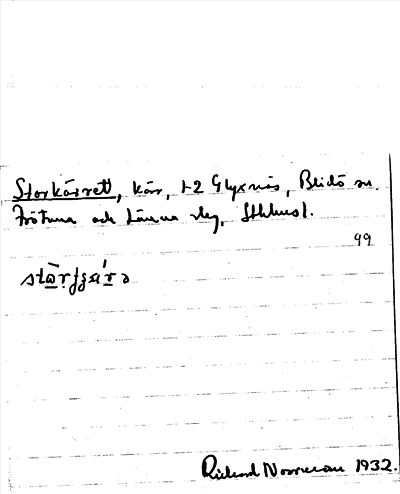 Storkärrett, kärr, 1-2 Glyxnäs, Blidö sn.
Frötuna och Länna slg, Sthlms l.
99
Rickard Norrman 1932.